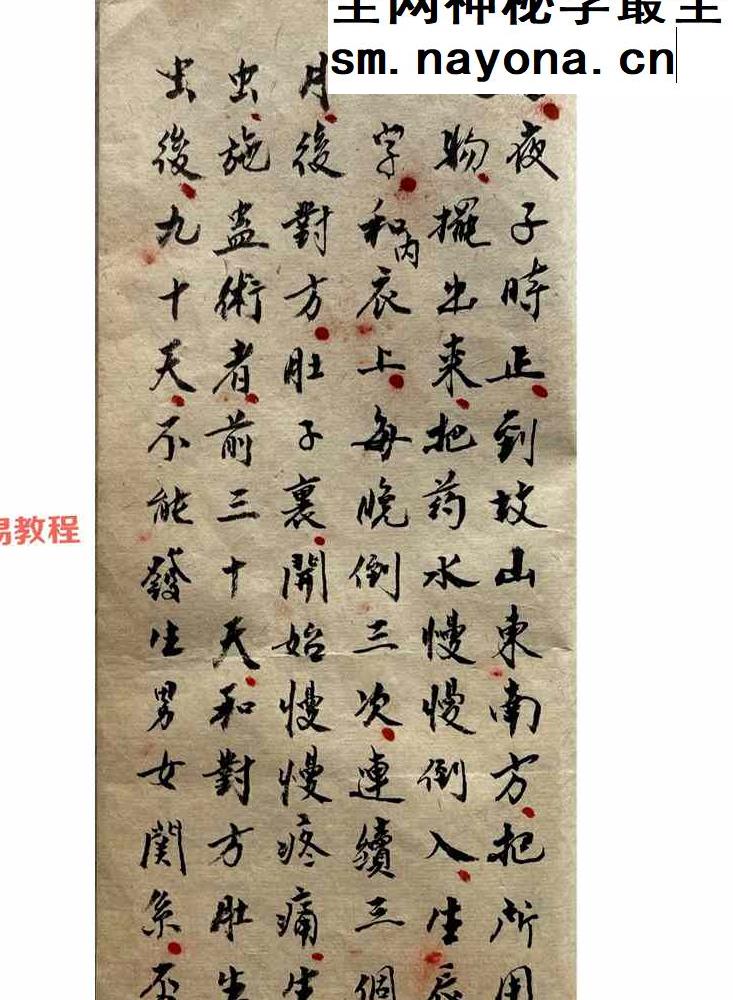 全网神秘学最全
sm.nayona.cn
易教程
夜子時正到坟山東南方把所用
物擺出来把药水慢慢倒入生辰
字和内衣上每晚倒三次連續三個
月後對方肚子裏開始慢慢疼痛生
虫施蛊術者前三十天和對方肚生
虫後九十天不能發生男女関系否